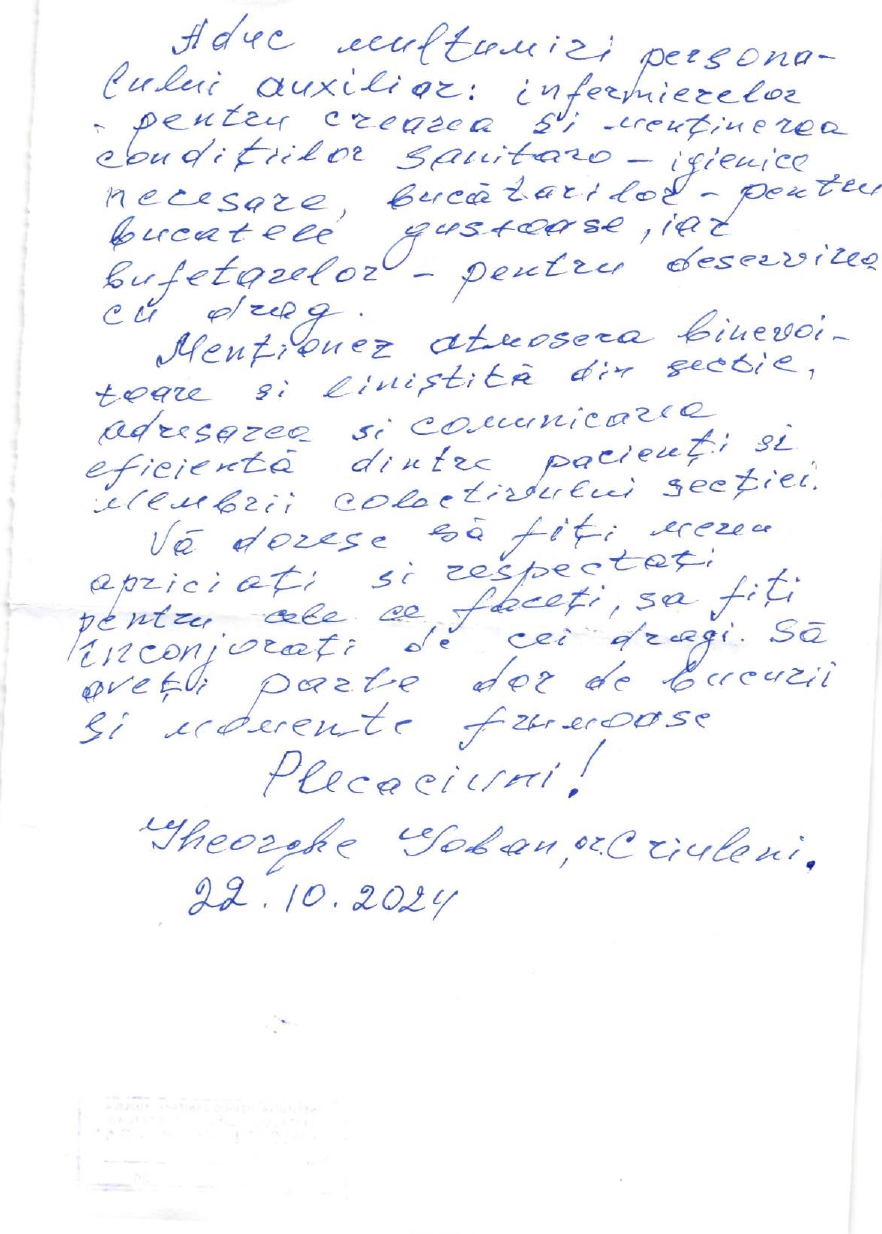 Aduc mulțumiri persona-
lului auxiliar: infermierelor
- pentru crearea și menținerea
condițiilor sanitaro - igienice
necesare, bucătarilor - pentru
bucatele gustoase, iar
bufetarelor - pentru deservirea
cu drag.
Menționez atmosera binevoi-
toare si liniștită din secție,
adresarea si comunicarea
eficientă dintre pacienți si
membrii colectivului secției.
Vă doresc să fiți mereu
apriciați si respectați
pentru cele ce faceți, sa fiți
înconjorați de cei dragi. Să
aveți parte doar de bucurii
și momente frumoase
Plecaciuni!
Gheorghe Țoban, or. Criuleni.
22.10.2024